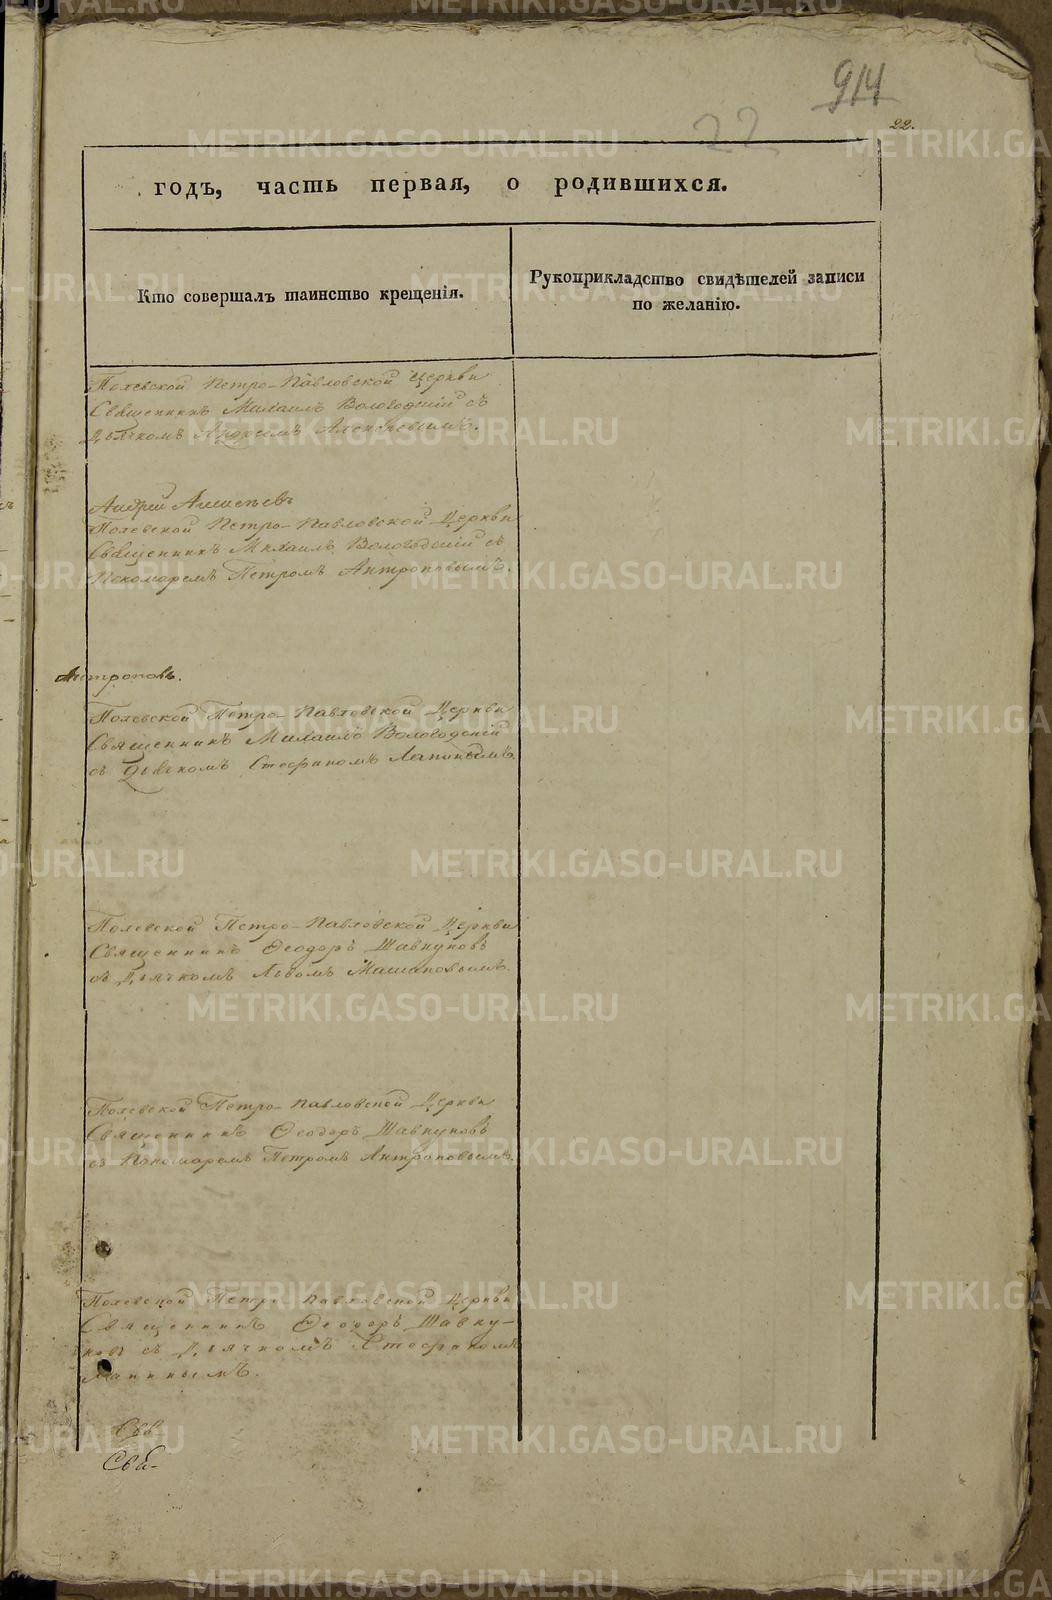 914
22
22.
годъ, часть первая, о родившихся.
Кто совершалъ таинство крещенія.
Рукоприкладство свидѣтелей записи
по желанію.
Полевской Петро-Павловской Церкви
Священникъ Михаилъ Вологодскій съ
Дьячкомъ Андреемъ
Андрей
Полевской Петро-Павловской Церкви
Священникъ Михаилъ Вологодскій съ
Пономаремъ Петромъ Антроповымъ.
Антроповъ.
Полевской Петро-Павловской Церкви
Священникъ Михаилъ Вологодскій
съ Дьячкомъ Стефаномъ
Полевской Петро-Павловской Церкви
Священникъ Ѳеодоръ Шавкуновъ
съ Дьячкомъ Львомъ
Полевской Петро-Павловской Церкви
Священникъ Ѳеодоръ Шавкуновъ
съ Пономаремъ Петромъ Антроповымъ.
Полевской Петро-Павловской Церкви
Священникъ Ѳеодоръ Шавку-
новъ съ Дьячкомъ Стефаномъ
METRIKI.GASO-URAL.RU